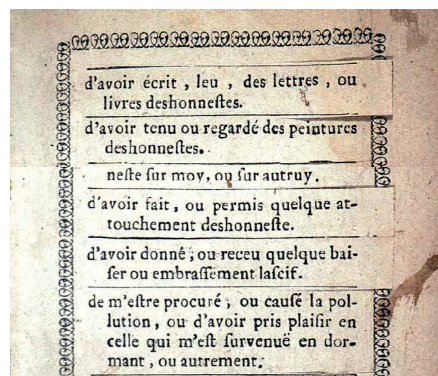 d'avoir écrit , leu , des lettres , ou
livres deshonneſtes.
d'avoir tenu ou regardé des peintures
deshonneſtes.
neſte ſur moy, ou ſur autruy.
d'avoir fait , ou permis quelque at-
touchement deshonneſte.
d'avoir donné , ou receu quelque bai-
ſer ou embraſſement laſcif.
de m'eſtre procuré , ou cauſé la pol-
lution , ou d'avoir pris plaiſir en
celle qui m'eſt ſurvenuë en dor-
mant , ou autrement.